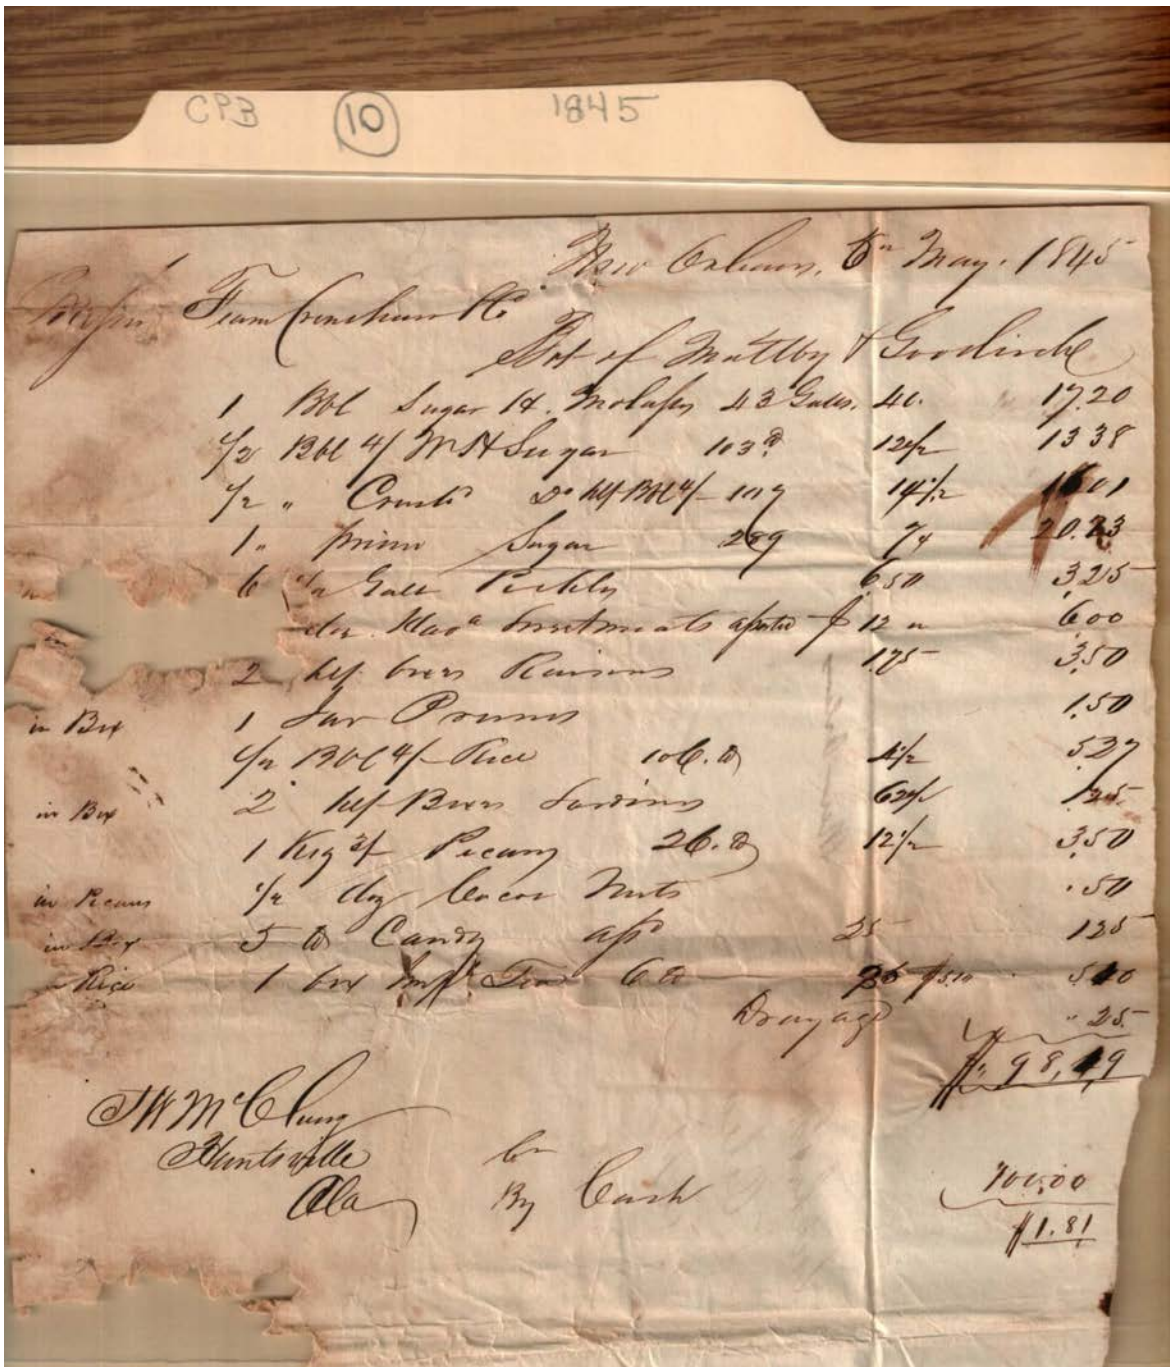 CPB 10 1845
New Orleans, 5th May. 1845
Messrs Fearn Crenshaw & Co
Bot of Maltby & Goodrich
1 Bbl Sugar H. Molasses 43 Galls. 40. 17.20
1/2 Bbl 4/ WH Sugar 103 lb 12 1/2 13 38
1/2 " Crush Do hlf Bbl 4/ 107 14 1/2
1 " prime Sugar 289 7 20.23
6 1/2 Gall Pickles 6 50 3.25
doz. Hava Sweetmeats assorted $ 12 " 6.00
2 hlf boxes Raisins 1.75 3.50
in Box 1 Jar Prunes 1.50
1/2 Bbl 4/ Rice 106. lb
in Box 2 hlf Boxes Sardines 62 1/2 1.25
1 Keg 2/ Pecans 26. lb 12 1/2 3.50
in Pecans 1/2 doz Cocoa Nuts .50
in Box 5 lb Candy ass 25 125
Rice 1 box Tea 6 lb
Drayage " 25
$ 98,19
McClung
Huntsville
Ala
Cr
By Cash 100.00
$ 1.81